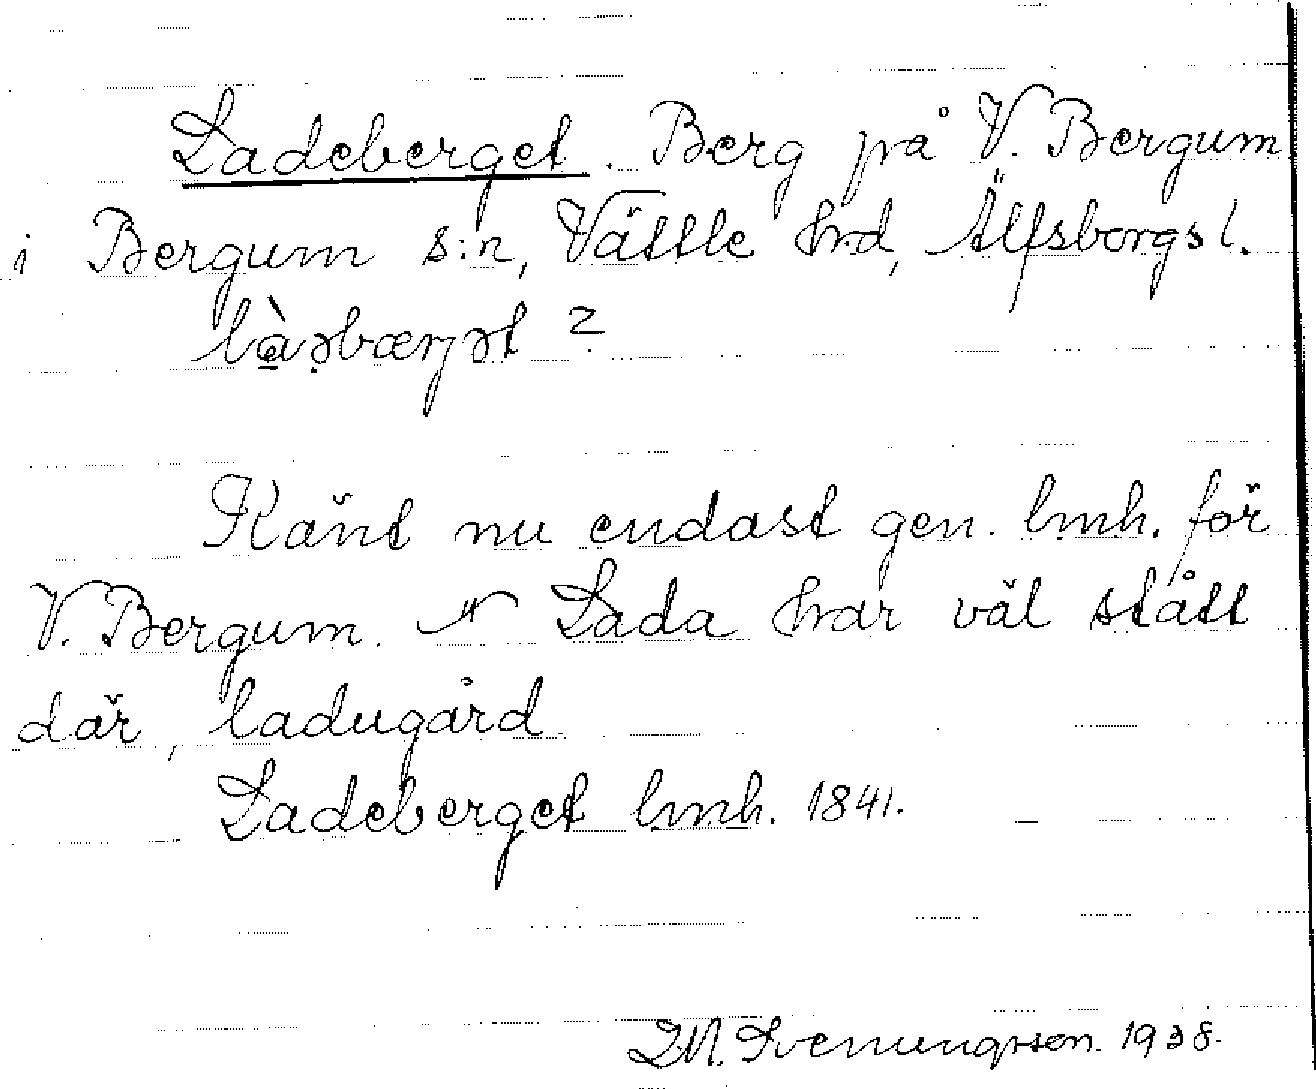 Ladeberget. Berg på V. Bergum
i Bergum s:n, Vättle hrd, Älfsborgs l.
làəbærjət ?
Känt nu endast gen. lmh. för
V. Bergum. Lada har väl stått
där, ladugård
Ladeberget lmh. 1841.
Svenungsson. 1938.